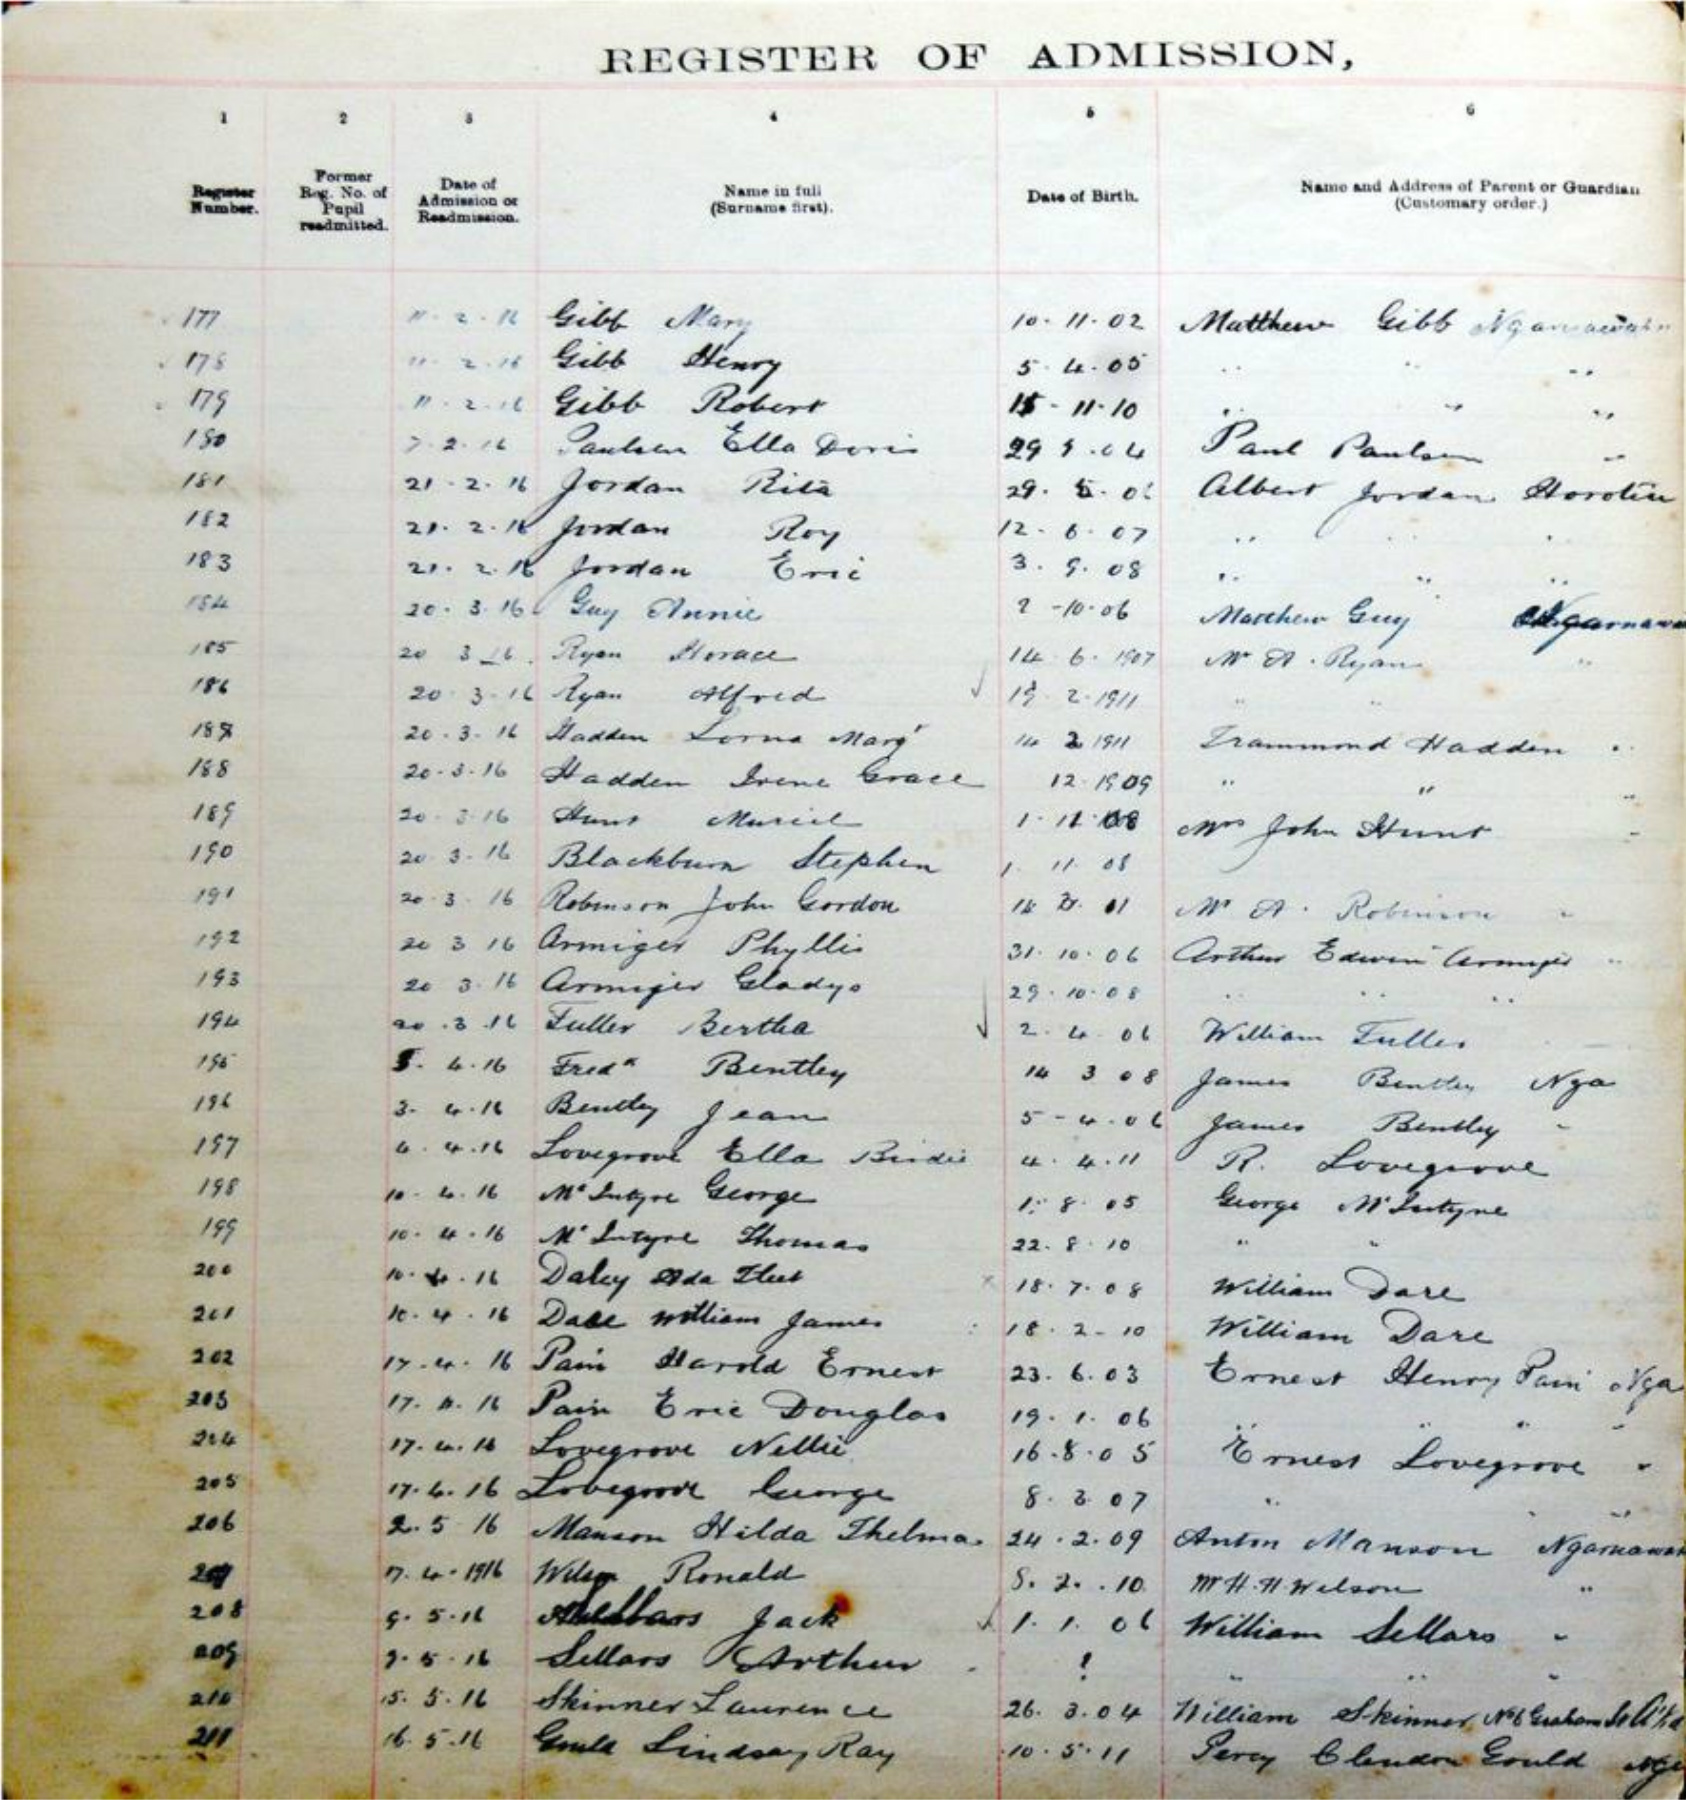 REGISTER OF ADMISSION,
1 2 3 4 5 6
Register Number. Former Reg. No. of Pupil readmitted. Date of Admission or Readmission. Name in full (Surname first). Date of Birth. Name and Address of Parent or Guardian (Customary order.)
177 11-2-16 Gibb Mary 10-11-02 Matthew Gibb
178 11-2-16 Gibb Henry 5-4-05 " " "
179 11-2-16 Gibb Robert 15-11-10 " " "
180 7-2-16 Paulsen Ella Doris 29 9.04 Paul Paulsen "
181 21-2-16 Jordan Rita 29. 5. Albert Jordan Horotiu
182 21-2-16 Jordan Roy 12-6-07 " "
183 21-2-16 Jordan Eric 3. 9. 08 " " "
184 20-3-16 Guy Annie 2-10-06 Matthew Guy
185 20 3 16 Ryan Horace 14-6-1907 Mr A. Ryan "
186 20-3-16 Ryan Alfred 2-1911 " "
187 20-3-16 Hadden Lorna Margt 14 2 1911 Trammond Hadden "
188 20-3-16 Hadden Irene Grace 12-1909 " " "
189 20-3-16 Hunt Muriel 1-11-08 Mrs John Hunt "
190 20-3-16 Blackburn Stephen 1. 11. 08
191 20-3-16 Robinson John Gordon 14 Mr A. Robinson "
192 20 3 16 Armiger Phyllis 31-10-06 Arthur Edwin Armiger "
193 20 3-16 Armiger Gladys 29-10-08 " " "
194 20.3.16 Fuller Bertha 2. 4. 06 William Fuller
195 4.16 Fredk Bentley 14 3 08 James Bentley Nga
196 3. 4.16 Bentley Jean 5-4-06 James Bentley "
197 6. 4.16 Lovegrove Ella Birdie 4. 4.11 R. Lovegrove
198 10. 4. 16 McIntyre George 1. 8. 05 George McIntyre
199 10. 4. 16 McIntyre Thomas 22. 8. 10 " "
200 10. 4. 16 Daley Ada 18. 7. 08 William Dare
201 10. 4. 16 Dare William James 18. 2-10 William Dare
202 17. 4. 16 Pain Harold Ernest 23. 6. 03 Ernest Henry Pain Nga
203 17. 4. 16 Pain Eric Douglas 19. 1. 06 " " "
204 17. 4. 16 Lovegrove Nellie 16.8.05 Ernest Lovegrove "
205 17. 4. 16 Lovegrove George 8. 3. 07 " "
206 2. 5 16 Manson Hilda Thelma 24. 2. 09 Anton Manson
207 17. 4-1916 Wilson Ronald 8. 2. .10 Mr H. H. Wilson "
208 9. 5-16 Jack 1. 1. 06 William Sellars "
209 9. 5. 16 Sellars Arthur ? " " "
210 15. 5. 16 Skinner Laurence 26. 3.04 William Skinner No 6 Graham St
211 16. 5.16 Gould Lindsay Ray 10. 5. 11 Percy Clendon Gould